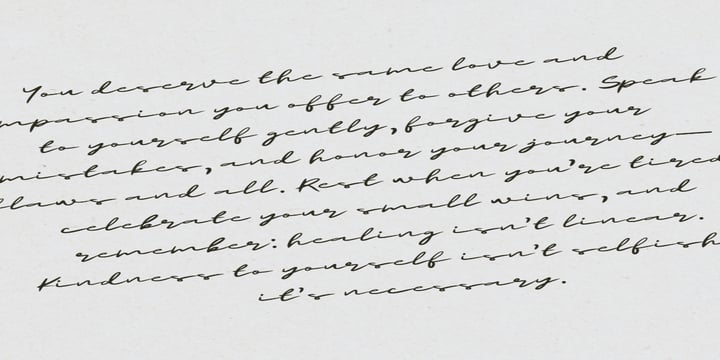 You deserve the same love and
mpassion you offer to others. Speak
to yourself gently, forgive your
mistakes, and honor your journey—
flaws and all. Rest when you're tired
celebrate your small wins, and
remember: healing isn't linear.
Kindness to yourself isn't selfish
it's necessary.